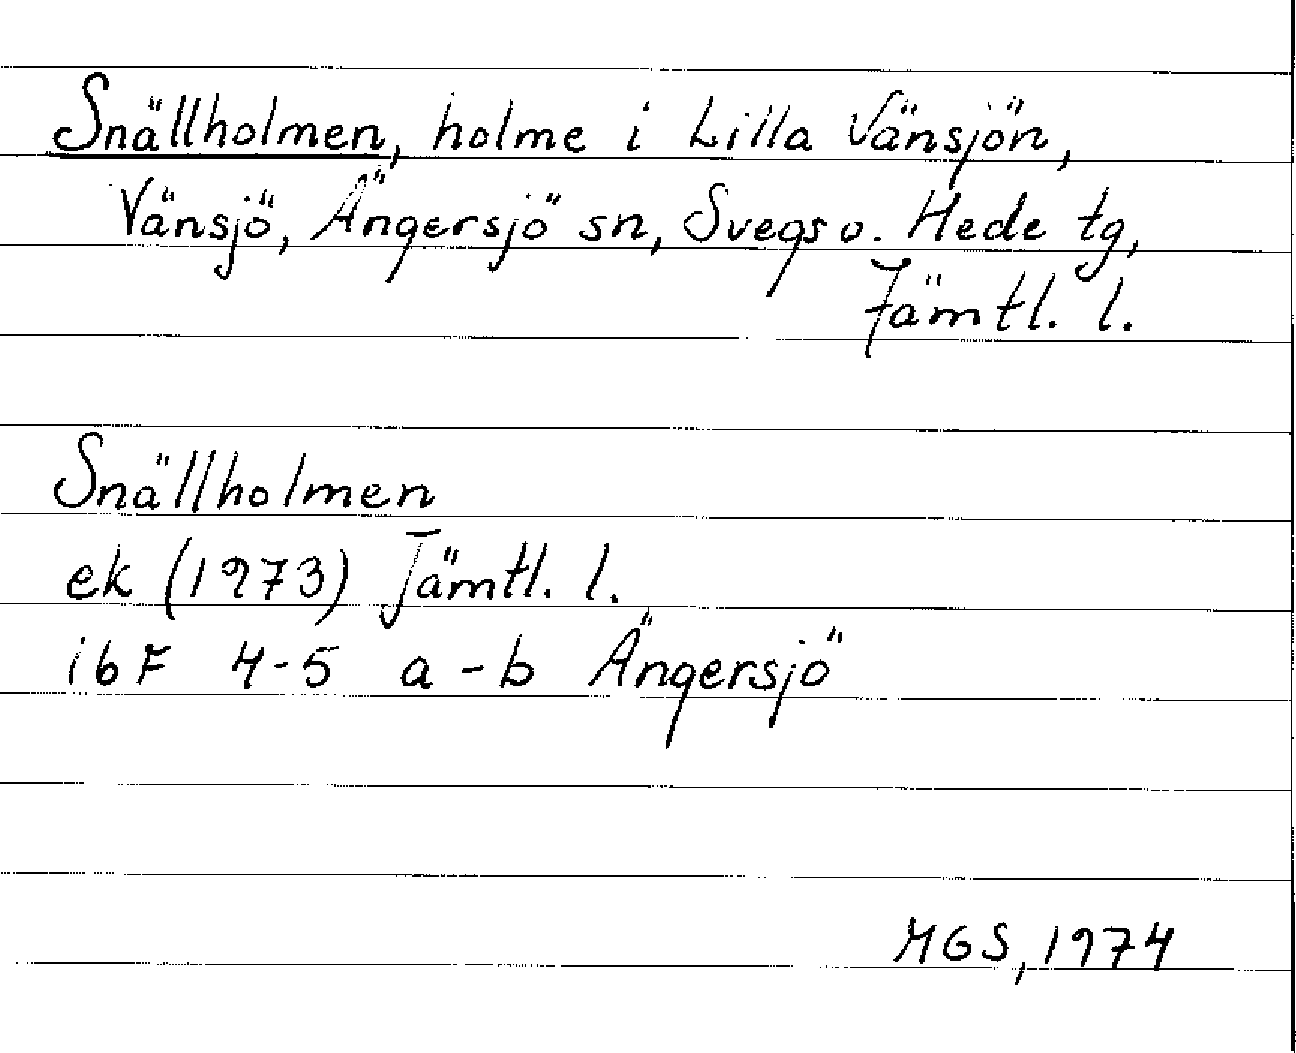 Snällholmen, holme i Lilla Vänsjön,
Vänsjö, Ängersjö sn, Svegs o. Hede tg,
Jämtl. l.
Snällholmen
ek (1973) Jämtl. l.
16F 4-5 a-b Ängersjö
MGS, 1974